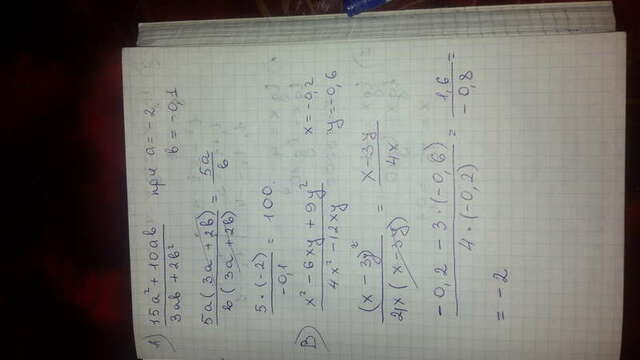 А) 15a² + 10ab / 3ab + 2b² при a = -2, b = -0,1
5a(3a + 2b) / b(3a + 2b) = 5a / b
5·(-2) / -0,1 = 100.
В) x² - 6xy + 9y² / 4x² - 12xy x = -0,2 y = -0,6
(x - 3y)² / 4x(x - 3y) = x - 3y / 4x
-0,2 - 3·(-0,6) / 4·(-0,2) = 1,6 / -0,8 =
= -2